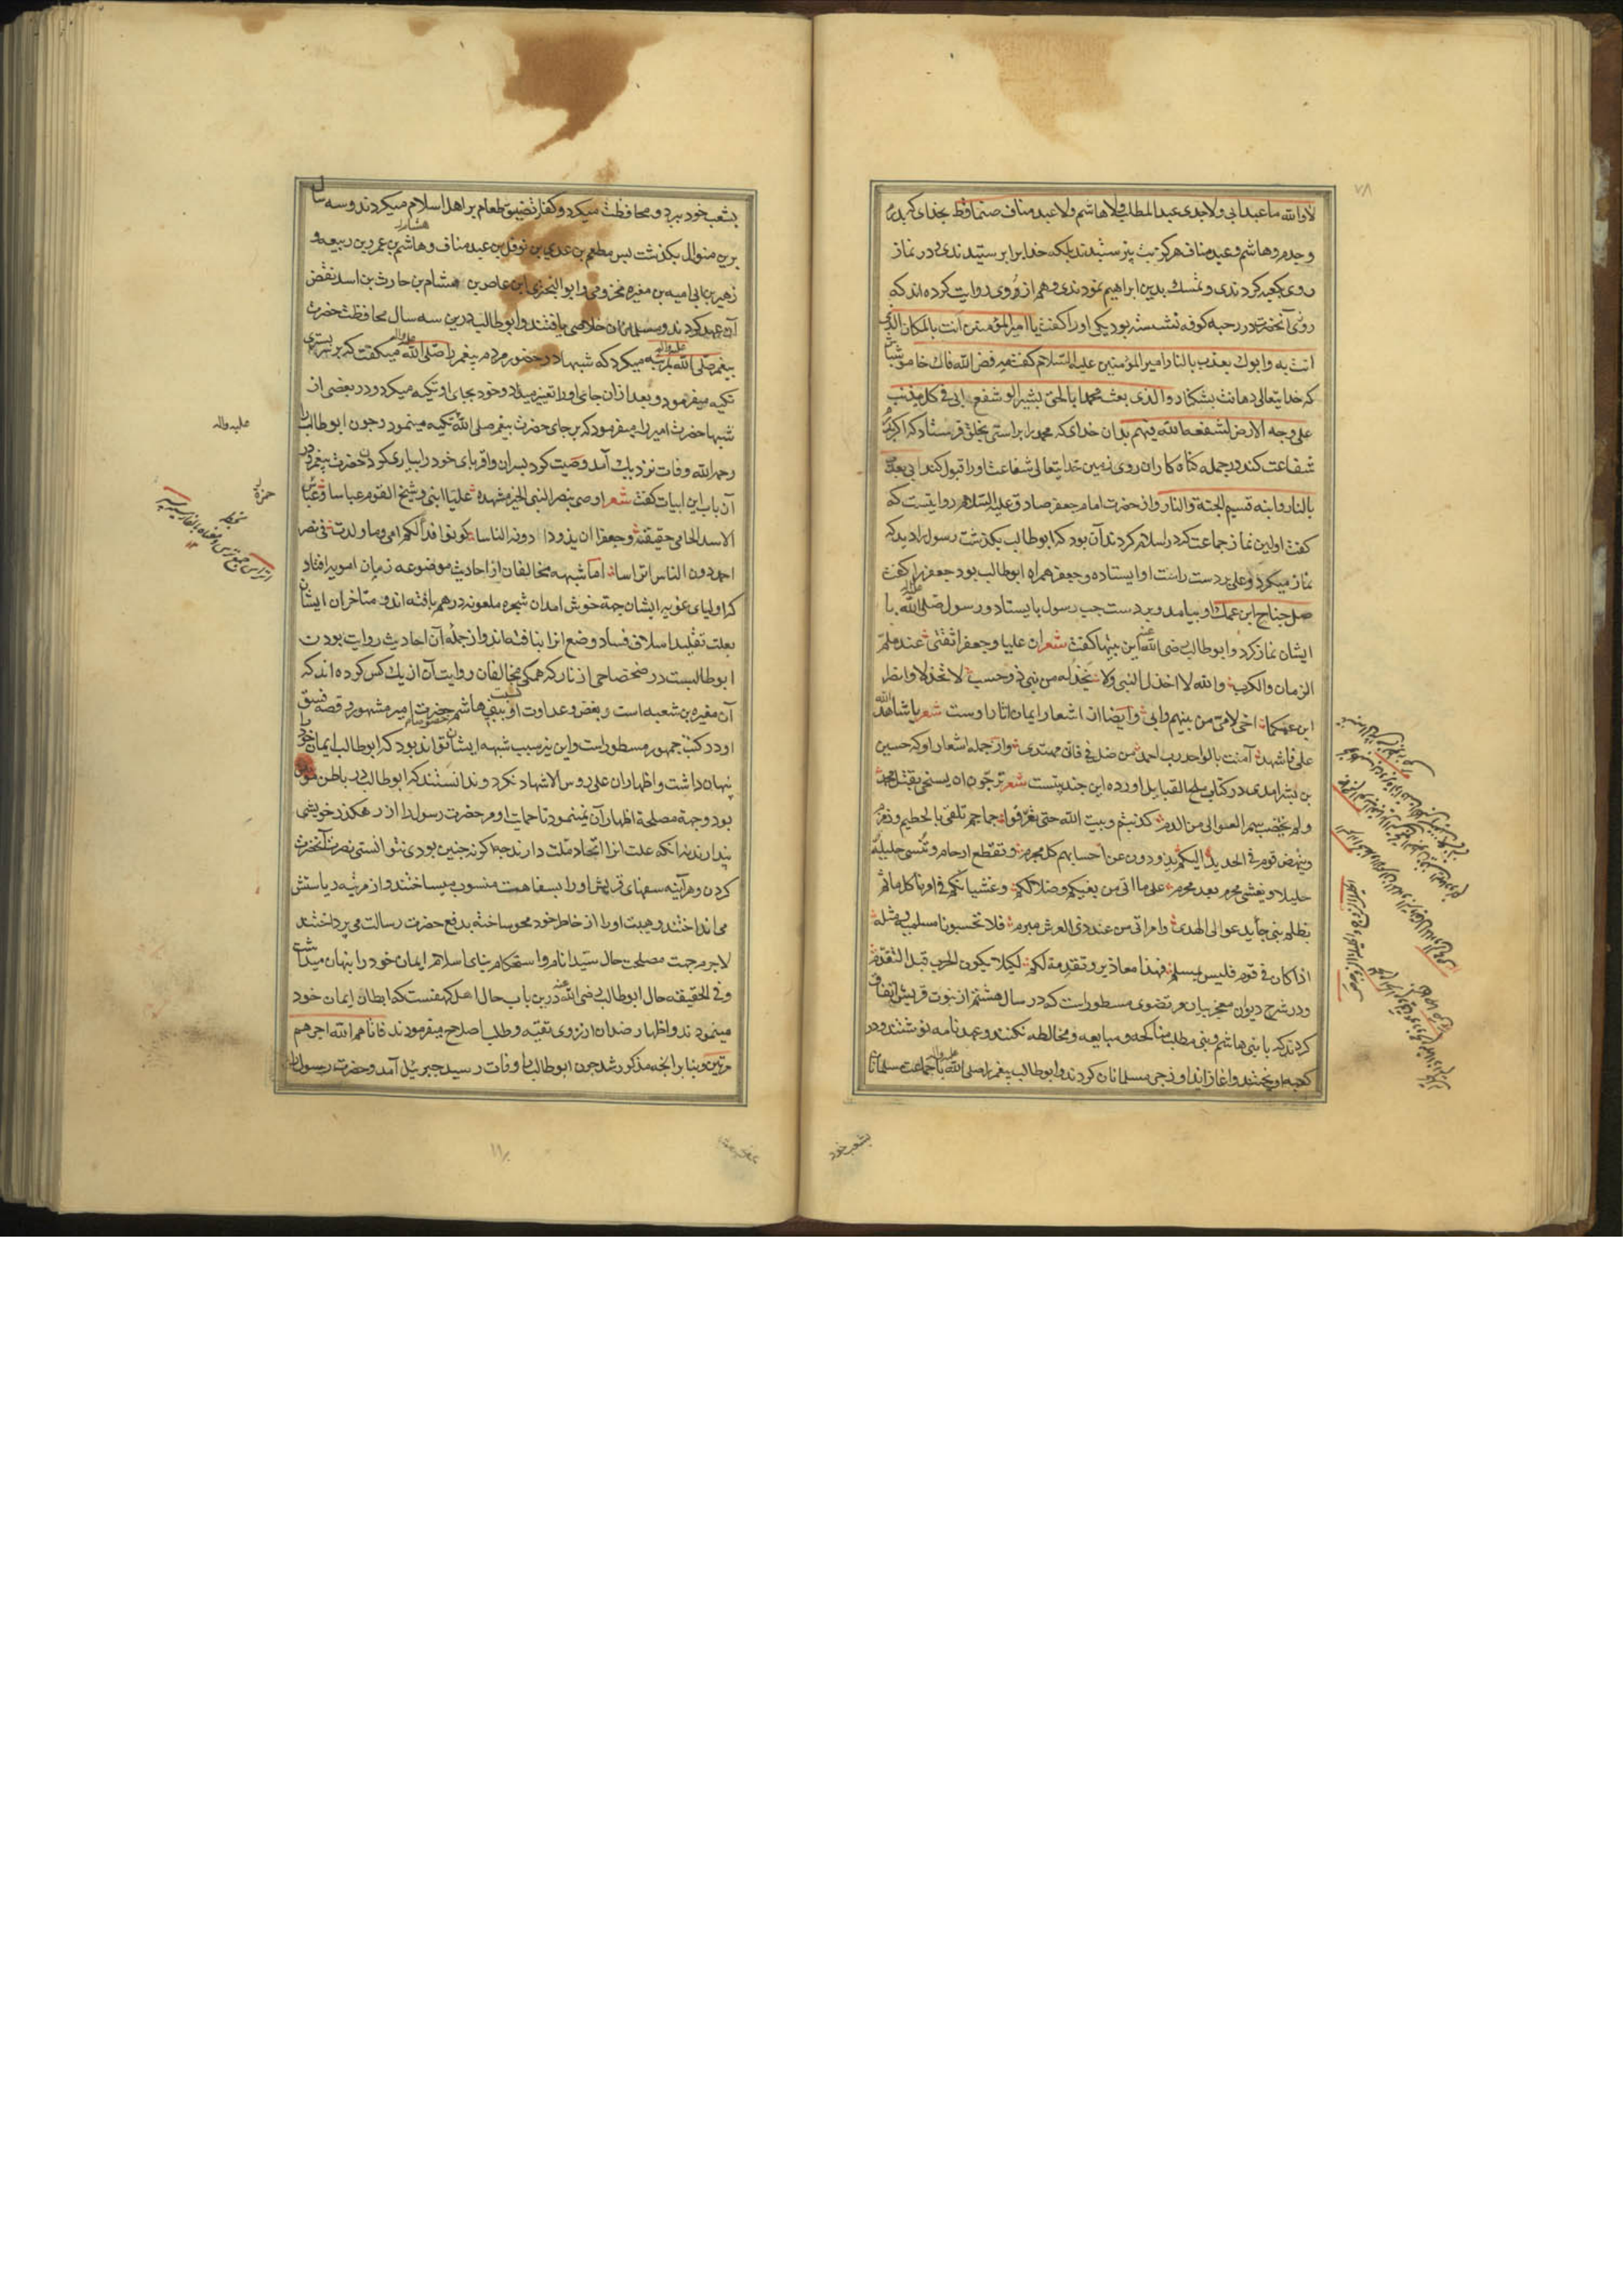 لا والله ما عبد ابی ولا جدی عبد المطلب ولا هاشم ولا عبد مناف صنما قط بخدای که پدرم
و جدم و هاشم و عبد مناف هرگز بت نپرستیدند بلکه خدایرا پرستیدندی در نماز
روی بکعبه کردندی و تمسک بدین ابراهیم نمودندی و هم از وی روایت کرده اند که
روزی آنحضرت در رحبه کوفه نشسته بود یکی او را گفت یا امیر المؤمنین انت بالمکان الذی
انت به وابوک یعذب بالنار امیر المؤمنین علیه السلام گفت مه فض الله فاک خاموش باش
که خدایتعالی دهانت بشکناد والذی بعث محمدا بالحق بشیرا لو شفع ابی فی کل مذنب
علی وجه الارض لشفعه الله فیهم بدان خدای که محمد را براستی بخلق فرستاد که اگر پدرم
شفاعت کند در جمله گناه کاران روی زمین خدایتعالی شفاعت او را قبول کند ابی یعذب
بالنار وابنه قسیم الجنة والنار و از حضرت امام جعفر صادق علیه السلام روایتست که
گفت اولین نماز جماعت که در اسلام کردند آن بود که ابوطالب بگذشت رسول را دید که
نماز میکرد و علی بر دست راست او ایستاده و جعفر همراه ابوطالب بود جعفر را گفت
صل جناح ابن عمک او بیامد و بر دست چپ رسول بایستاد و رسول صلی الله علیه و اله با
ایشان نماز کرد و ابوطالب رضی الله عنه این بیتها گفت شعر ان علیا وجعفرا ثقتی عند ملم
الزمان والکرب والله لا اخذل النبی ولا یخذله من بنی ذو حسب لا تخذلا وانصرا
ابن عمکما اخی لامی من بینهم وابی و ایضا از اشعار ایمان اثار اوست شعر یا شاهد الله
علی فاشهد آمنت بالواحد رب احمد من ضل فی فانی مهتدی و از جمله اشعار او که حسین
بن بشر امدی در کتاب ملح القبایل اورده این چند بیتست شعر ترجون ان یسخی بقتل محمد
ولم یخضب سمر العوالی من الدم کذبتم وبیت الله حتی تعرفوا جماجم تلقی بالحطیم وزمزم
وینهض قوم فی الحدید الیکم یذودون عن احسابهم کل مجرم وتقطع ارحام وتنسی حلیلة
حلیلا ویغشی محرم بعد محرم علی ما اتی من بغیکم وضلالکم وغشیانکم فی امرنا کل ماثم
بظلم نبی جاء یدعو الی الهدی وامر اتی من عند ذی العرش مبرم فلا تحسبونا مسلمیه ومثله
اذا کان فی قوم فلیس بمسلم فهذا معاذیر وتقدمة لکم لکیلا یکون الحرب قبل التقدم
و در شرح دیوان معجز بیان مرتضوی مسطور است که در سال هشتم از نبوت قریش اتفاق
کردند که با بنی هاشم و بنی مطلب مناکحه و مبایعه و مخالطه نکنند و عهدنامه نوشتند و در
کعبه اویختند و اغاز ایذا و زجر مسلمانان کردند و ابوطالب پیغمبر را صلی الله علیه و اله با جماعت مسلمانان
بشعب خود
۷۸
بشعب خود برد و محافظت میکرد و کفار تضییق طعام بر اهل اسلام میکردند و سه سال
برین منوال بگذشت پس مطعم بن عدی بن نوفل بن عبد مناف و هاشم بن عمرو بن ربیعه و
هشام
زهیر بن ابی امیه بن مغیره مخزومی و ابو البختری ابن عاص بن هشام بن حارث بن اسد نقض
آن عهد کردند و مسلمانان خلاصی یافتند و ابوطالب درین سه سال محافظت حضرت
پیغمبر صلی الله علیه و اله میکرد که شبها در حضور مردم پیغمبر را صلی الله علیه و اله میگفت که بر بستری
تکیه میفرمود و بعد از ان جای او را تغییر میداد و خود بجای او تکیه میکرد و در بعضی از
شبها حضرت امیر را میفرمود که بر جای حضرت پیغمبر صلی الله تکیه مینمود و چون ابوطالب را
علیه واله
رحمه الله وفات نزدیک آمد وصیت کرد پسران و اقربای خود را بیاری کردن حضرت پیغمبر و در
آن باب این ابیات گفت شعر اوصی بنصر النبی الخیر مشهده علیا ابنی وشیخ القوم عباسا
حمزه
الاسد الحامی حقیقته وجعفرا ان یذودا دونه الناسا کونوا فدا لکم امی وما ولدت فی نصر
احمد دون الناس اتراسا اما شبهه مخالفان از احادیث موضوعه زمان امویه افتاد
که اولیای غویه ایشان جهة خوش امد ان شجره ملعونه در هم بافته اند و متاخران ایشان
بعلت تقلید اسلاف فساد وضع انرا نیافته اند و از جمله آن احادیث روایت بودن
ابوطالبست در ضحضاحی از نار که همگی مخالفان روایت آن از یک کس کرده اند که
آن مغیره بن شعبه است و بغض و عداوت او نسبت ببنی هاشم خصوصا حضرت امیر مشهور و قصه فسق
او در کتب جمهور مسطور است و این نیز سبب شبهه ایشان تواند بود که ابوطالب ایمان خود را
پنهان داشت و اظهار ان علی روس الاشهاد نکرد و ندانستند که ابوطالب در باطن مومن
بود و جهة مصلحة اظهار آن نمینمود تا حمایت او مر حضرت رسول را از رهگذر خویشی
پندارند نه انکه علت انرا اتحاد ملت دارند چه اگر نه چنین بودی نتوانستی نصرت آنحضرت
کردن و هرآینه سفهای قریش او را بسفاهت منسوب میساختند و از مرتبه ریاستش
می انداختند و هیبت او را از خاطر خود محو ساخته بدفع حضرت رسالت می پرداختند
لاجرم جهت مصلحت حال سید انام و استحکام بنای اسلام ایمان خود را پنهان میداشت
و فی الحقیقه حال ابوطالب رضی الله عنه درین باب حال اهل کهفست که ابطان ایمان خود
مینمودند و اظهار ضد ان از روی تقیه و طلب اصلاح میفرمودند فاتاهم الله اجرهم
مرتین و بنا بر انچه مذکور شد چون ابوطالب را وفات رسید جبرئیل آمد و حضرت رسول را